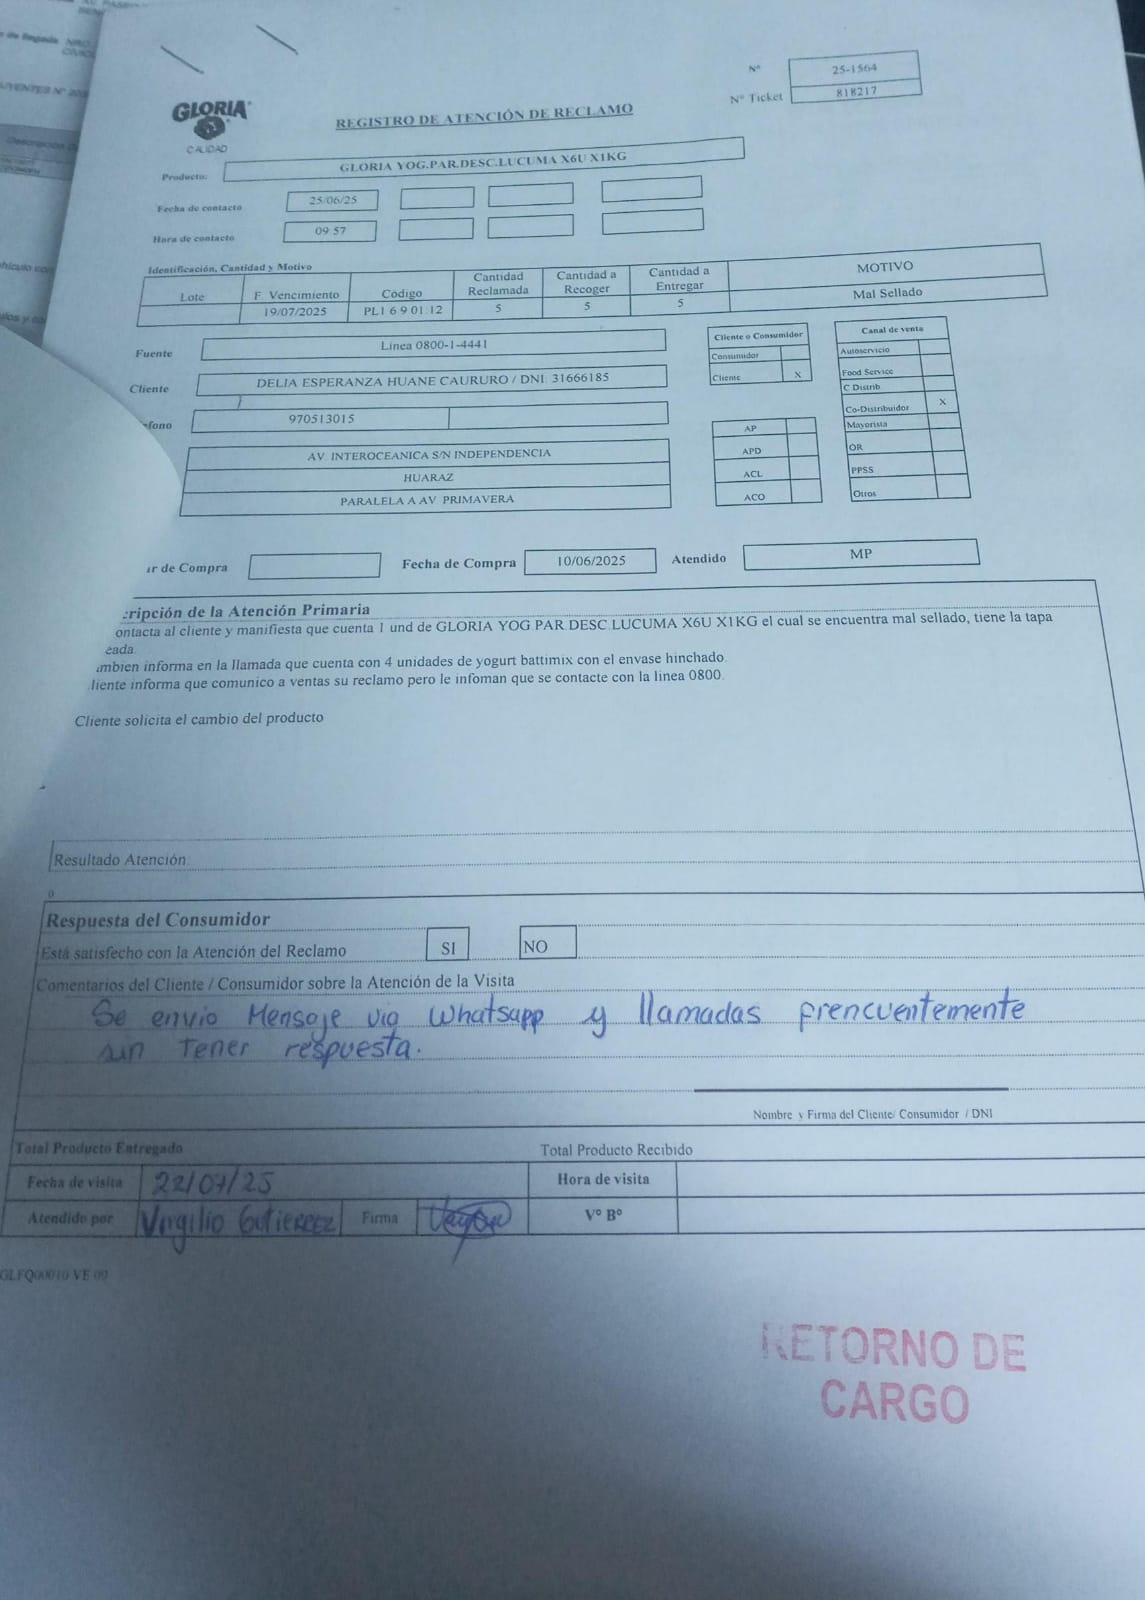 Nº 25-1564
Nº Ticket 818217
GLORIA
CALIDAD
REGISTRO DE ATENCIÓN DE RECLAMO
Producto: GLORIA YOG.PAR.DESC.LUCUMA X6U X1KG
Fecha de contacto 25/06/25
Hora de contacto 09:57
Identificación, Cantidad y Motivo
Lote F. Vencimiento Código Cantidad Reclamada Cantidad a Recoger Cantidad a Entregar MOTIVO
19/07/2025 PL1 6 9 01:12 5 5 5 Mal Sellado
Fuente Línea 0800-1-4441
Cliente DELIA ESPERANZA HUANE CAURURO / DNI: 31666185
éfono 970513015
AV. INTEROCEANICA S/N INDEPENDENCIA
HUARAZ
PARALELA A AV. PRIMAVERA
Cliente o Consumidor
Consumidor
Cliente X
AP
APD
ACL
ACO
Canal de venta
Autoservicio
Food Service
C Distrib
Co-Distribuidor X
Mayorista
OR
PPSS
Otros
ar de Compra Fecha de Compra 10/06/2025 Atendido MP
cripción de la Atención Primaria
ontacta al cliente y manifiesta que cuenta 1 und de GLORIA YOG.PAR.DESC.LUCUMA X6U X1KG el cual se encuentra mal sellado, tiene la tapa
eada.
ambien informa en la llamada que cuenta con 4 unidades de yogurt battimix con el envase hinchado.
liente informa que comunico a ventas su reclamo pero le infoman que se contacte con la linea 0800.
Cliente solicita el cambio del producto
Resultado Atención:
0
Respuesta del Consumidor
Está satisfecho con la Atención del Reclamo SI NO
Comentarios del Cliente / Consumidor sobre la Atención de la Visita
Se envio Mensaje via Whatsapp y llamadas frencuentemente
sin tener respuesta.
Nombre y Firma del Cliente/ Consumidor / DNI
Total Producto Entregado Total Producto Recibido
Fecha de visita 22/07/25 Hora de visita
Atendido por Virgilio Gutierrez Firma Vº Bº
GLFQ00010 VE 09
RETORNO DE
CARGO